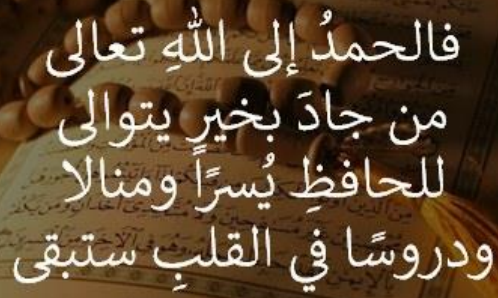 فالحمدُ إلى اللهِ تعالى
من جادَ بخيرٍ يتوالى
للحافظِ يُسرًا ومنالا
ودروسًا في القلبِ ستبقى